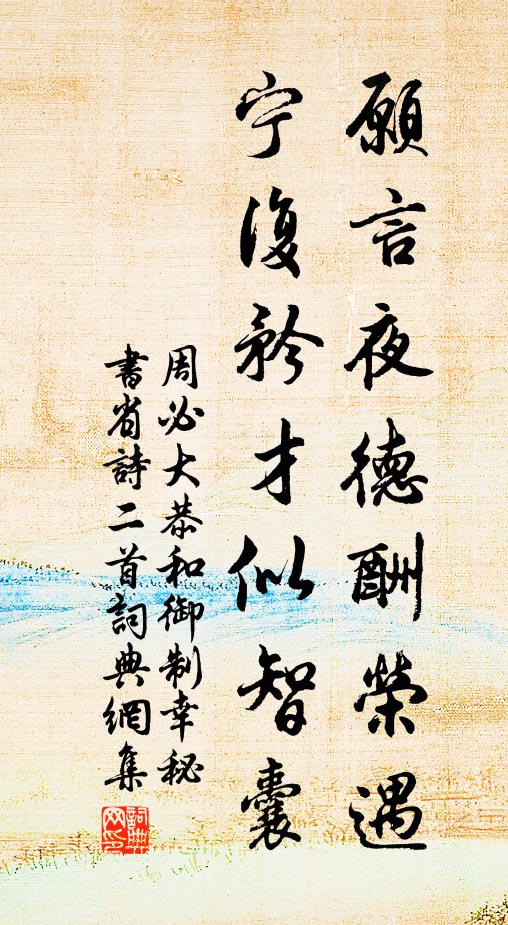 願言夜德酬榮遇
宁復矜才似智囊
周必大恭和御制幸秘
書省詩二首詞典網集